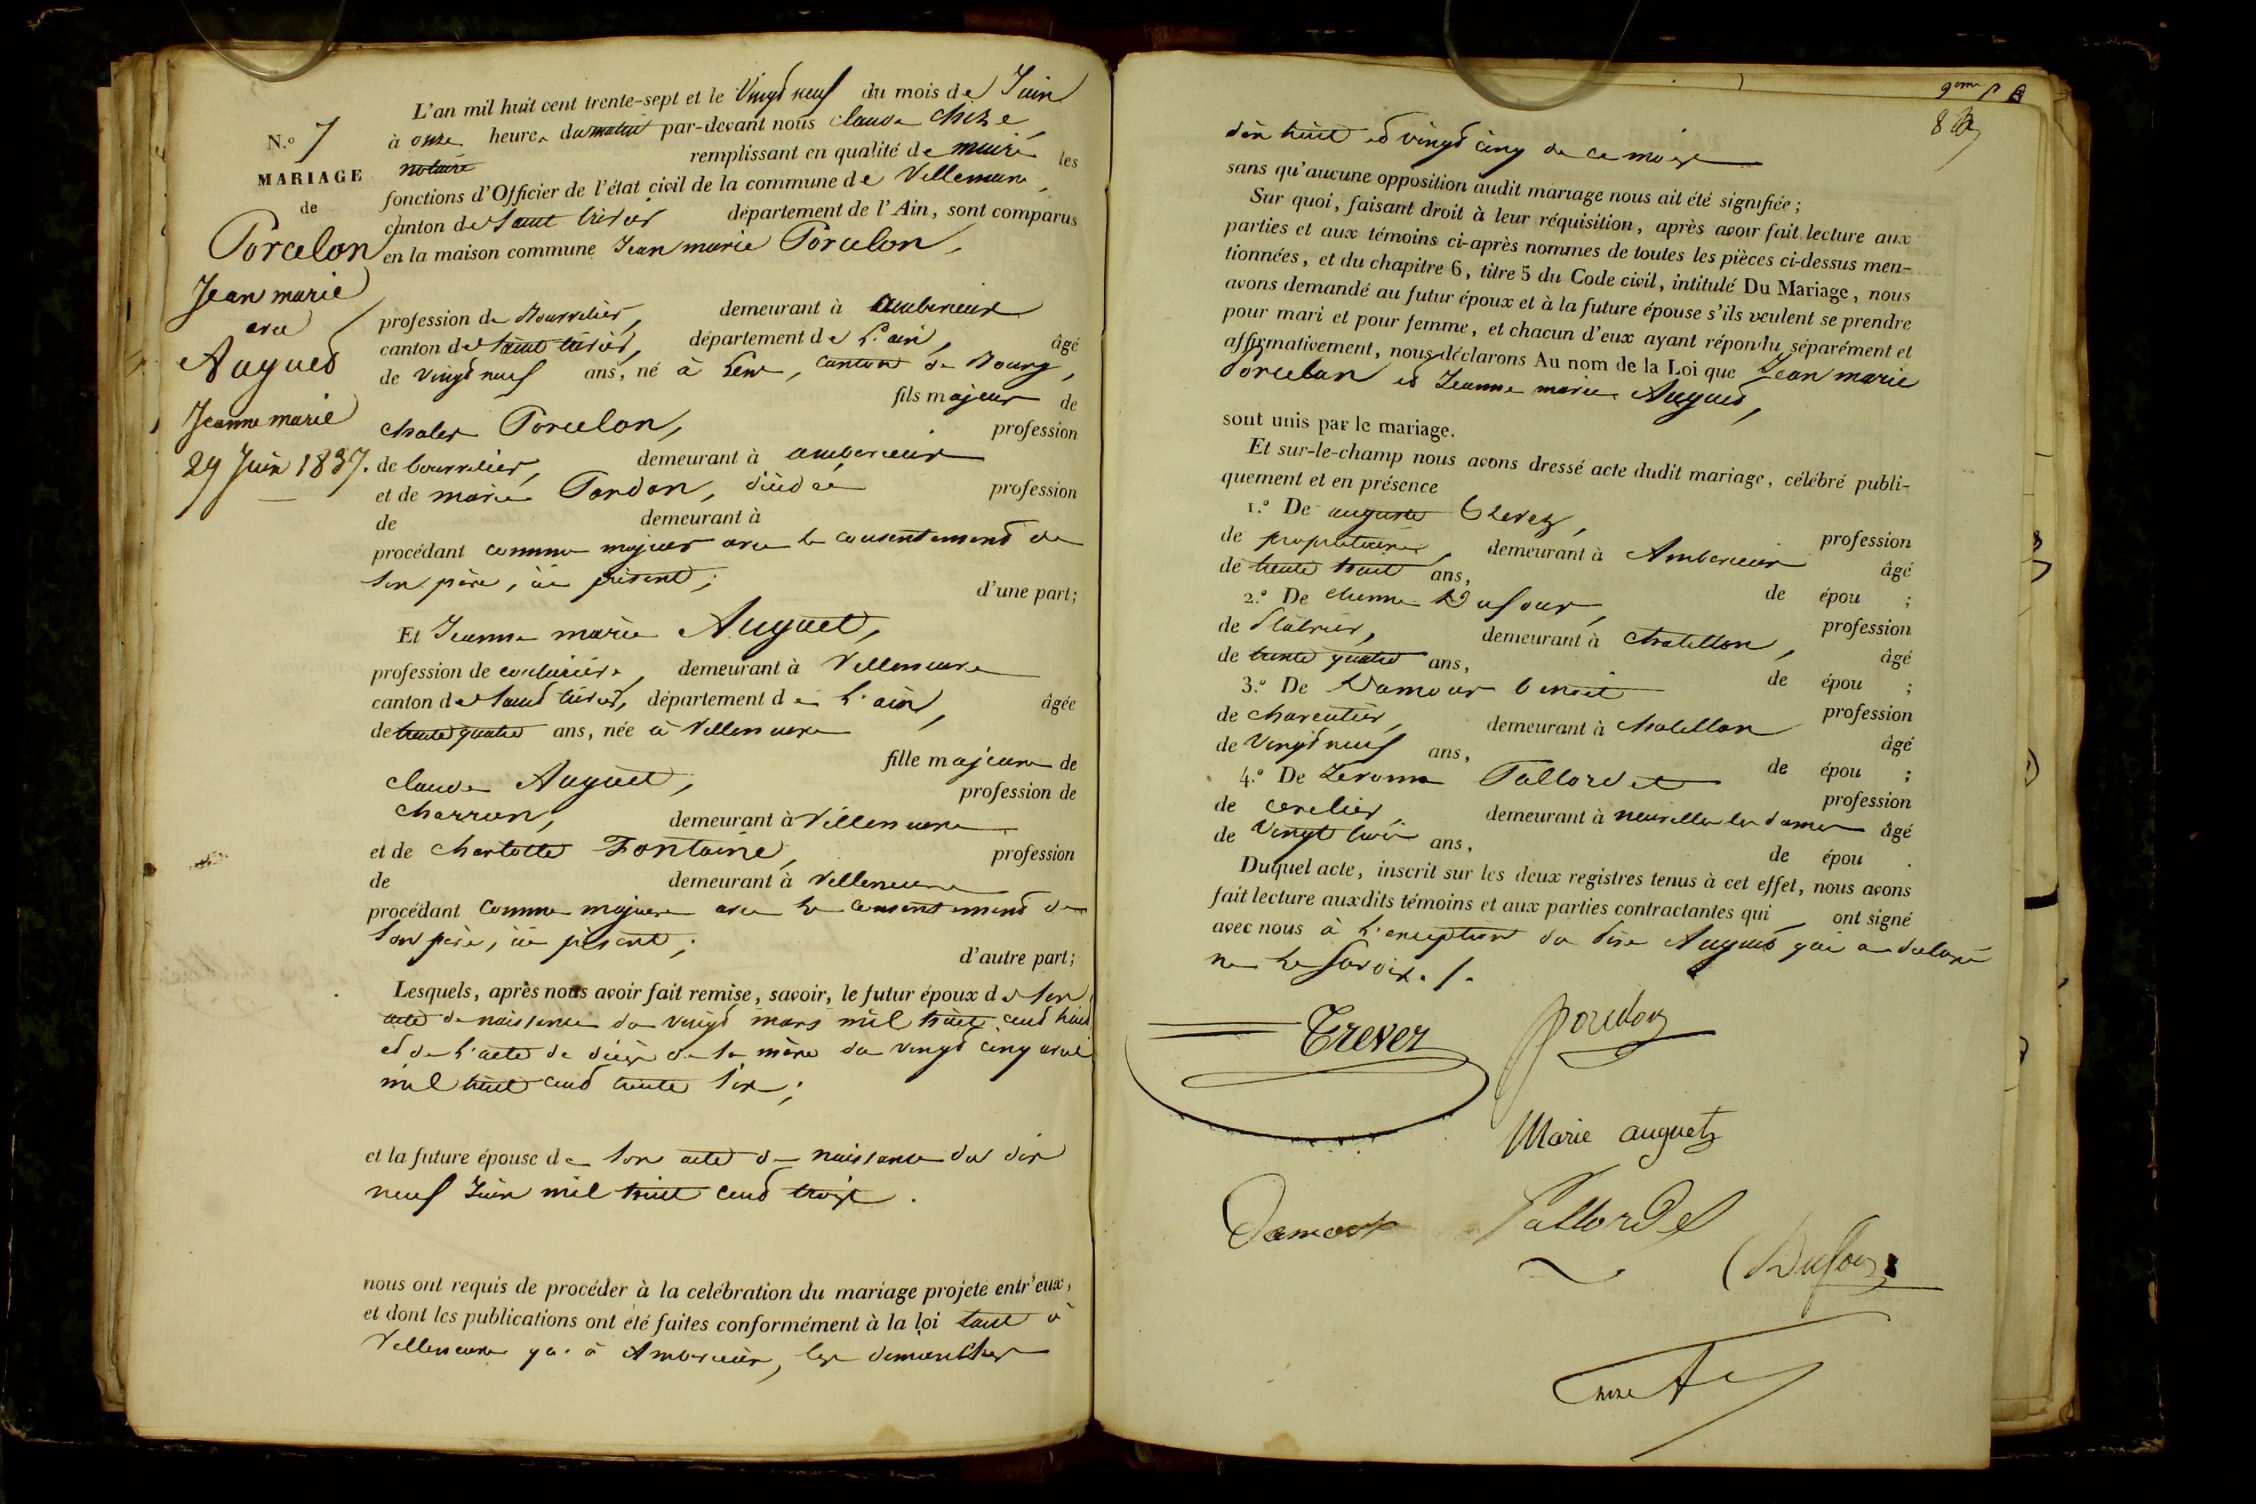 N.º 7
MARIAGE
de
Porcelon
Jean marie
avec
Augued
Jeanne marie
29 Juin 1837.
L'an mil huit cent trente-sept et le Vingt neuf du mois de Juin
à onze heures du matin par-devant nous claude Chize,
notaire remplissant en qualité de maire les
fonctions d'Officier de l'état civil de la commune de Villeneuve,
canton de Saint trivier département de l'Ain, sont comparus
en la maison commune Jean marie Porcelon,
profession de Bourrelier, demeurant à ambérieux
canton de Saint trivier, département de l'ain, âgé
de vingt neuf ans, né à Lent, canton de Bourg,
fils majeur de
Porcelon, profession
de bourrelier, demeurant à ambérieux
et de marie Pardon, décédée profession
de demeurant à
procédant comme majeur avec le consentement de
son père, ici présent; d'une part;
Et Jeanne marie Auguet,
profession de couturière, demeurant à Villeneuve
canton de Saint trivier, département de l'ain, âgée
de trente quatre ans, née à Villeneuve
fille majeure de
claude Auguet, profession de
charron, demeurant à Villeneuve
et de charlotte Fontaine, profession
de demeurant à Villeneuve
procédant comme majeure avec le consentement de
son père, ici présent; d'autre part;
Lesquels, après nous avoir fait remise, savoir, le futur époux de son
acte de naissance du vingt mars mil huit cent huit
et de l'acte de décès de sa mère du vingt cinq avril
mil huit cent trente six;
et la future épouse de son acte de naissance du dix
neuf Juin mil huit cent trois.
nous ont requis de procéder à la celébration du mariage projeté entr'eux,
et dont les publications ont été faites conformément à la loi tant à
Villeneuve qu'à Ambérieux, les dimanches
9me
8
dix huit et vingt cinq de ce mois
sans qu'aucune opposition audit mariage nous ait été signifiée;
Sur quoi, faisant droit à leur réquisition, après avoir fait lecture aux
parties et aux témoins ci-après nommés de toutes les pièces ci-dessus men-
tionnées, et du chapitre 6, titre 5 du Code civil, intitulé Du Mariage, nous
avons demandé au futur époux et à la future épouse s'ils veulent se prendre
pour mari et pour femme, et chacun d'eux ayant répondu séparément et
affirmativement, nous déclarons Au nom de la Loi que Jean marie
Porcelon et Jeanne marie Augued,
sont unis par le mariage.
Et sur-le-champ nous avons dressé acte dudit mariage, célébré publi-
quement et en présence
1.º De auguste Trever, profession
de propriétaire, demeurant à Ambérieux âgé
de trente huit ans, de épou ;
2.º De etienne Dufour, profession
de platrier, demeurant à chatillon, âgé
de trente quatre ans, de épou ;
3.º De Damour benoit profession
de charcutier, demeurant à chatillon âgé
de Vingt neuf ans, de épou ;
4.º De Jerome Pallordet profession
de demeurant à neuville les dames âgé
de Vingt trois ans, de épou .
Duquel acte, inscrit sur les deux registres tenus à cet effet, nous avons
fait lecture auxdits témoins et aux parties contractantes qui ont signé
avec nous à l'exception du père Augued qui a déclaré
ne le savoir. /.
Trever
Marie auguetz
Damour
Pallordet
Dufour